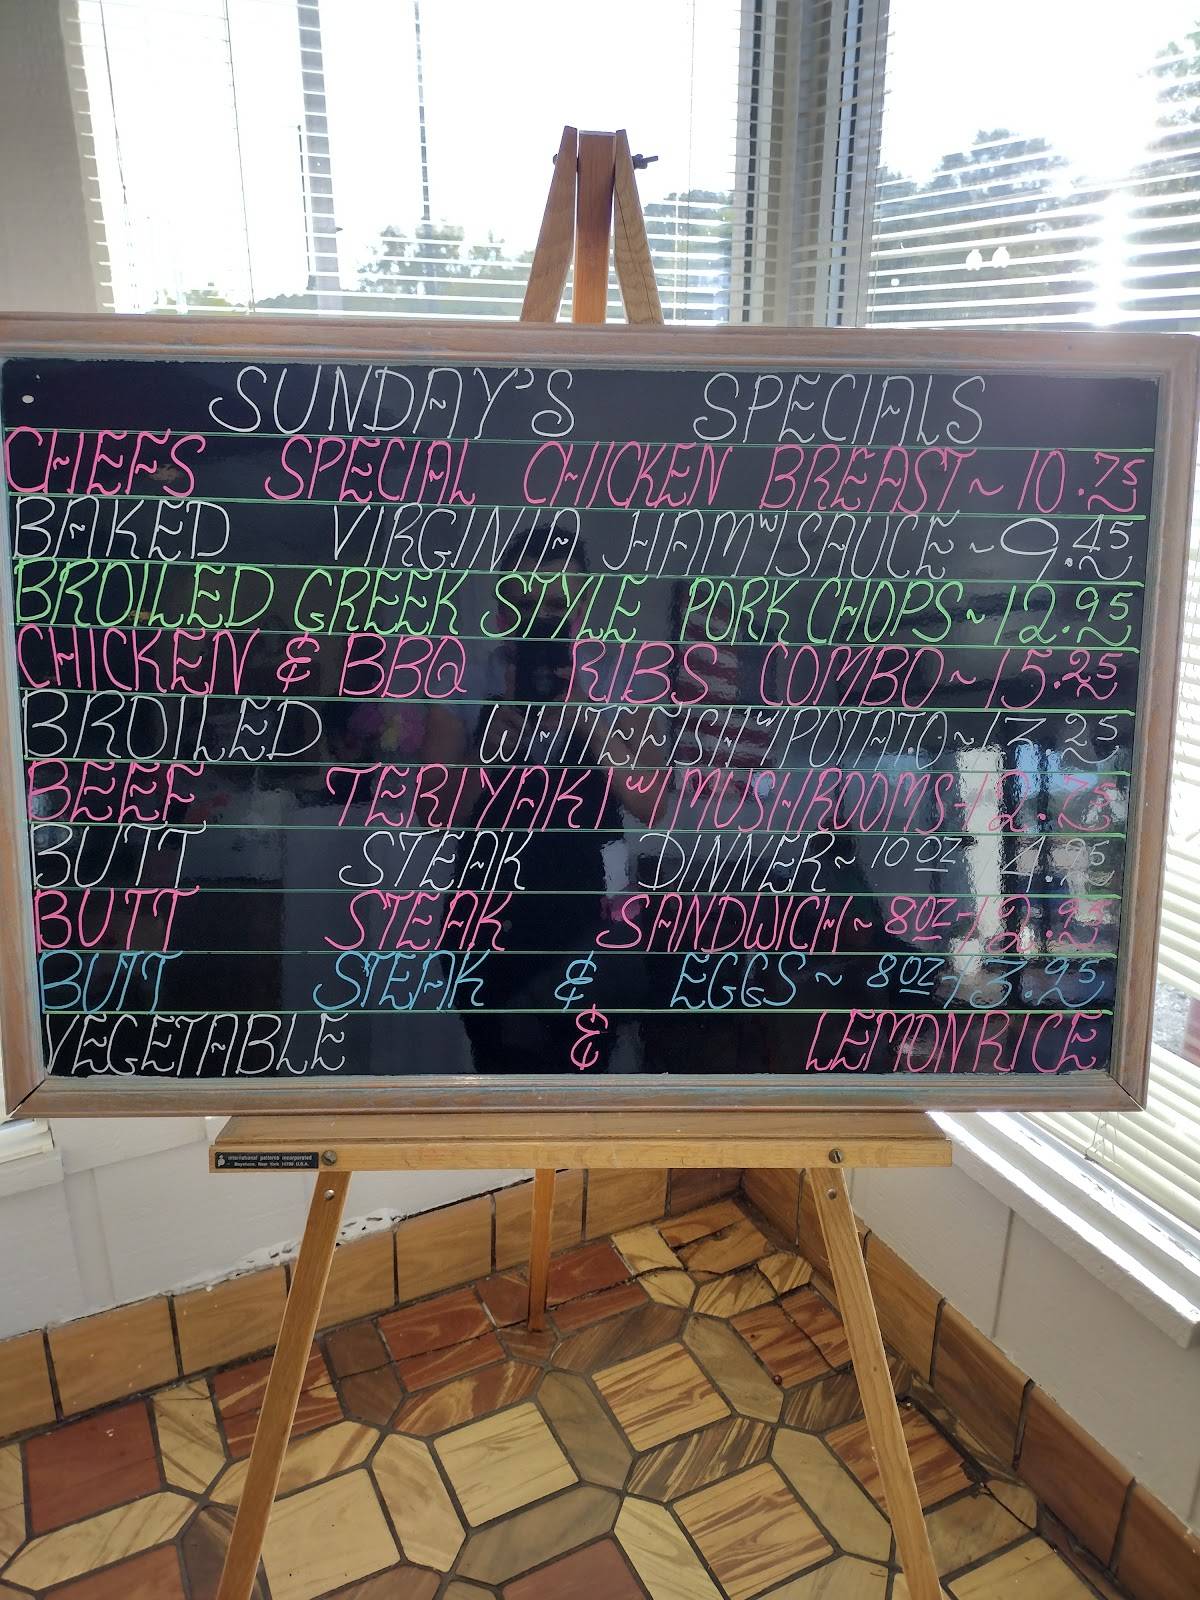 SUNDAY'S SPECIALS
CHEFS SPECIAL CHICKEN BREAST~10.75
BAKED VIRGINIA HAM W/SAUCE~9.45
BROILED GREEK STYLE PORK CHOPS~12.95
CHICKEN & BBQ RIBS COMBO~15.25
BROILED WHITEFISH W/POTATO~17.25
BEEF TERIYAKI W/MUSHROOMS-12.75
BUTT STEAK DINNER~10OZ
BUTT STEAK SANDWICH~8OZ-12.95
BUTT STEAK & EGGS~8OZ-13.95
VEGETABLE & LEMON RICE
international patterns incorporated
Bayshore, New York 11706 U.S.A.